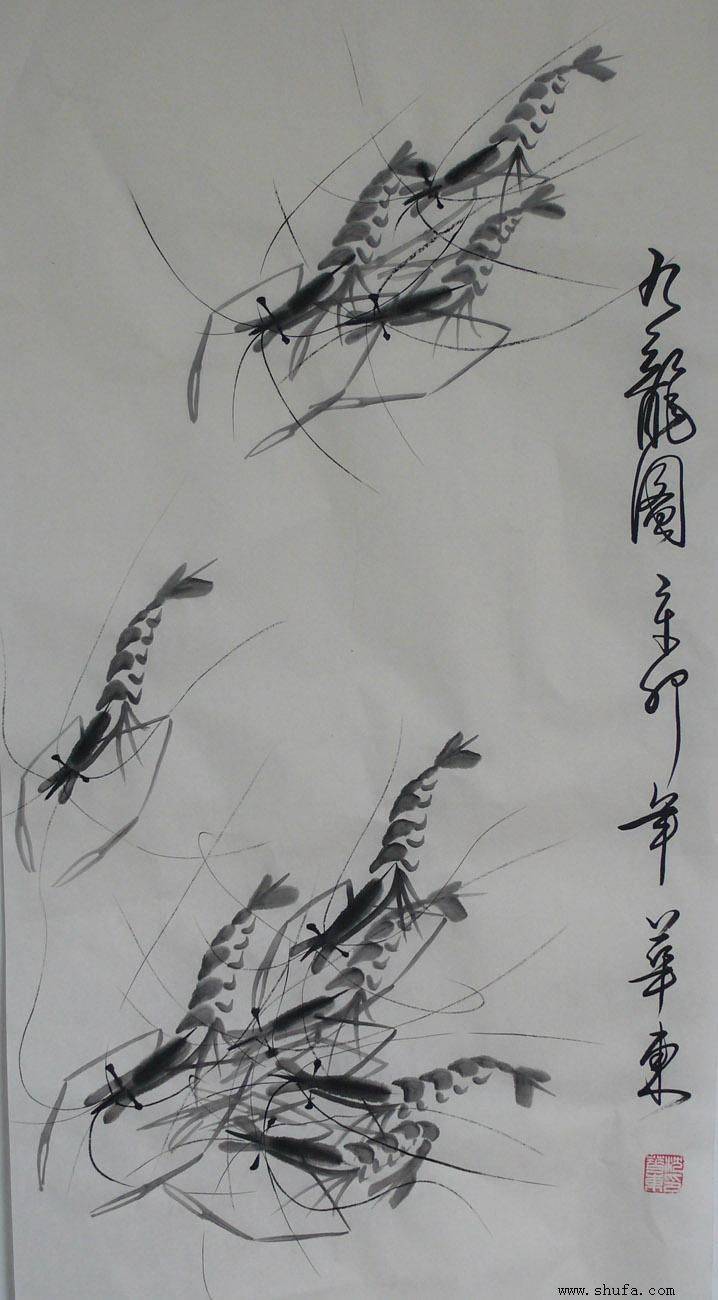 九龍圖 辛卯年 華東
www.shufa.com